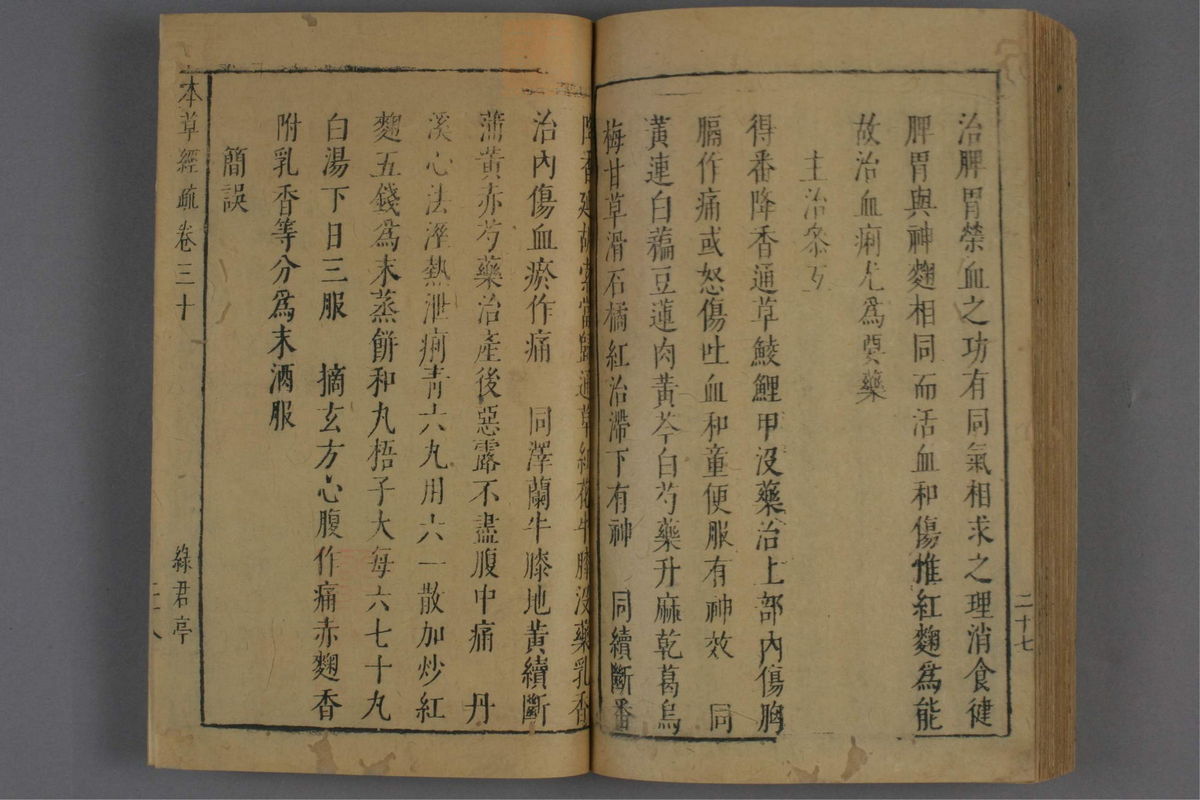 治脾胃榮血之功有同氣相求之理消食健
脾胃與神麴相同而活血和傷惟紅麴爲能
故治血痢尤爲要藥
主治參互
得番降香通草鯪鯉甲沒藥治上部內傷胸
膈作痛或怒傷吐血和童便服有神效 同
黃連白藊豆蓮肉黃芩白芍藥升麻乾葛烏
梅甘草滑石橘紅治滯下有神 同續斷番
二十七
降香延胡索當歸通草紅花牛膝沒藥乳香
治內傷血瘀作痛 同澤蘭牛膝地黃續斷
蒲黃赤芍藥治產後惡露不盡腹中痛 丹
溪心法溼熱泄痢青六丸用六一散加炒紅
麴五錢爲末蒸餅和丸梧子大每六七十丸
白湯下日三服 摘玄方心腹作痛赤麴香
附乳香等分爲末酒服
簡誤
本草經疏 卷三十 綠君亭